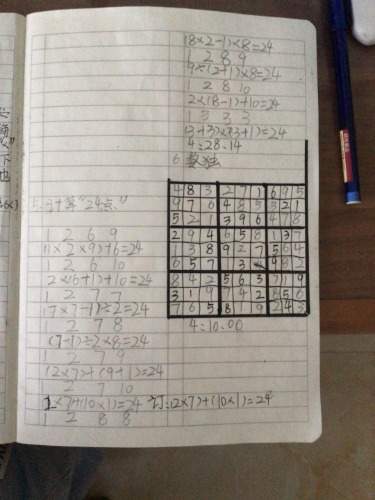 5. 计算"24点"
1 2 6 9
(1×2×9)+6=24
1 2 6 10
2×(6+1)+10=24
1 2 7 7
(7×7-1)÷2=24
1 2 7 8
(7-1)÷2×8=24
1 2 7 9
(2×7)+(9+1)=24
1 2 7 10
2×7+(10×1)=24 订:(2×7)+(10×1)=24
1 2 8 8
(8×2-1)×8=24
1 2 8 9
9÷(2+1)×8=24
1 2 8 10
2×(8-1)+10=24
1 3 3 3
(3+3)×(3+1)=24
4:28:14
6 数独
4 8 3 2 7 1 6 9 5
9 7 6 4 8 5 3 2 1
5 2 1 3 9 6 4 7 8
2 9 4 6 5 8 1 3 7
1 3 8 9 2 7 5 6 4
6 5 7 1 3 9 8 2
8 4 2 5 6 3 7 1 9
3 1 9 7 4 2 8 5 6
7 6 5 8 1 9 2 4 3
4:10.00